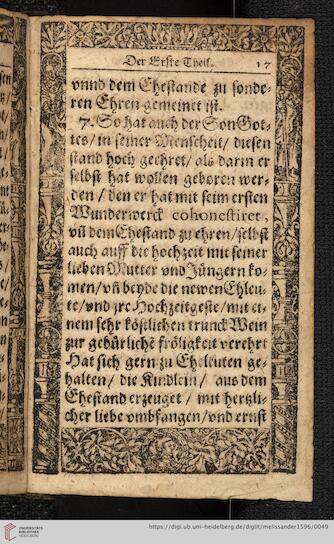 Der Erste Theil. 17
vnnd dem Ehestande zu sonde-
ren Ehren gemeinet ist.
7. So hat auch der Son Got-
tes/ in seiner Menscheit/ diesen
stand hoch geehret/ als darin er
selbst hat wollen geboren wer-
den/ den er hat mit seim ersten
Wunderwerck cohonestiret,
vñ dem Ehestand zu ehren/ selbst
auch auff die hochzeit mit seiner
lieben Mutter vnd Jüngern ko-
men/ vñ beyde die newen Ehleu-
te/ vnd jre Hochzeitgeste/ mit ei-
nem sehr köstlichen trunck Wein
zur gebürlichẽ fröligkeit verehrt
Hat sich gern zu Eheleuten ge-
halten/ die Kindlein/ aus dem
Ehestand erzeuget/ mit hertzli-
cher liebe vmbfangen/ vnd ernst
UNIVERSITÄTS-
BIBLIOTHEK
HEIDELBERG
https://digi.ub.uni-heidelberg.de/diglit/melissander1596/0049